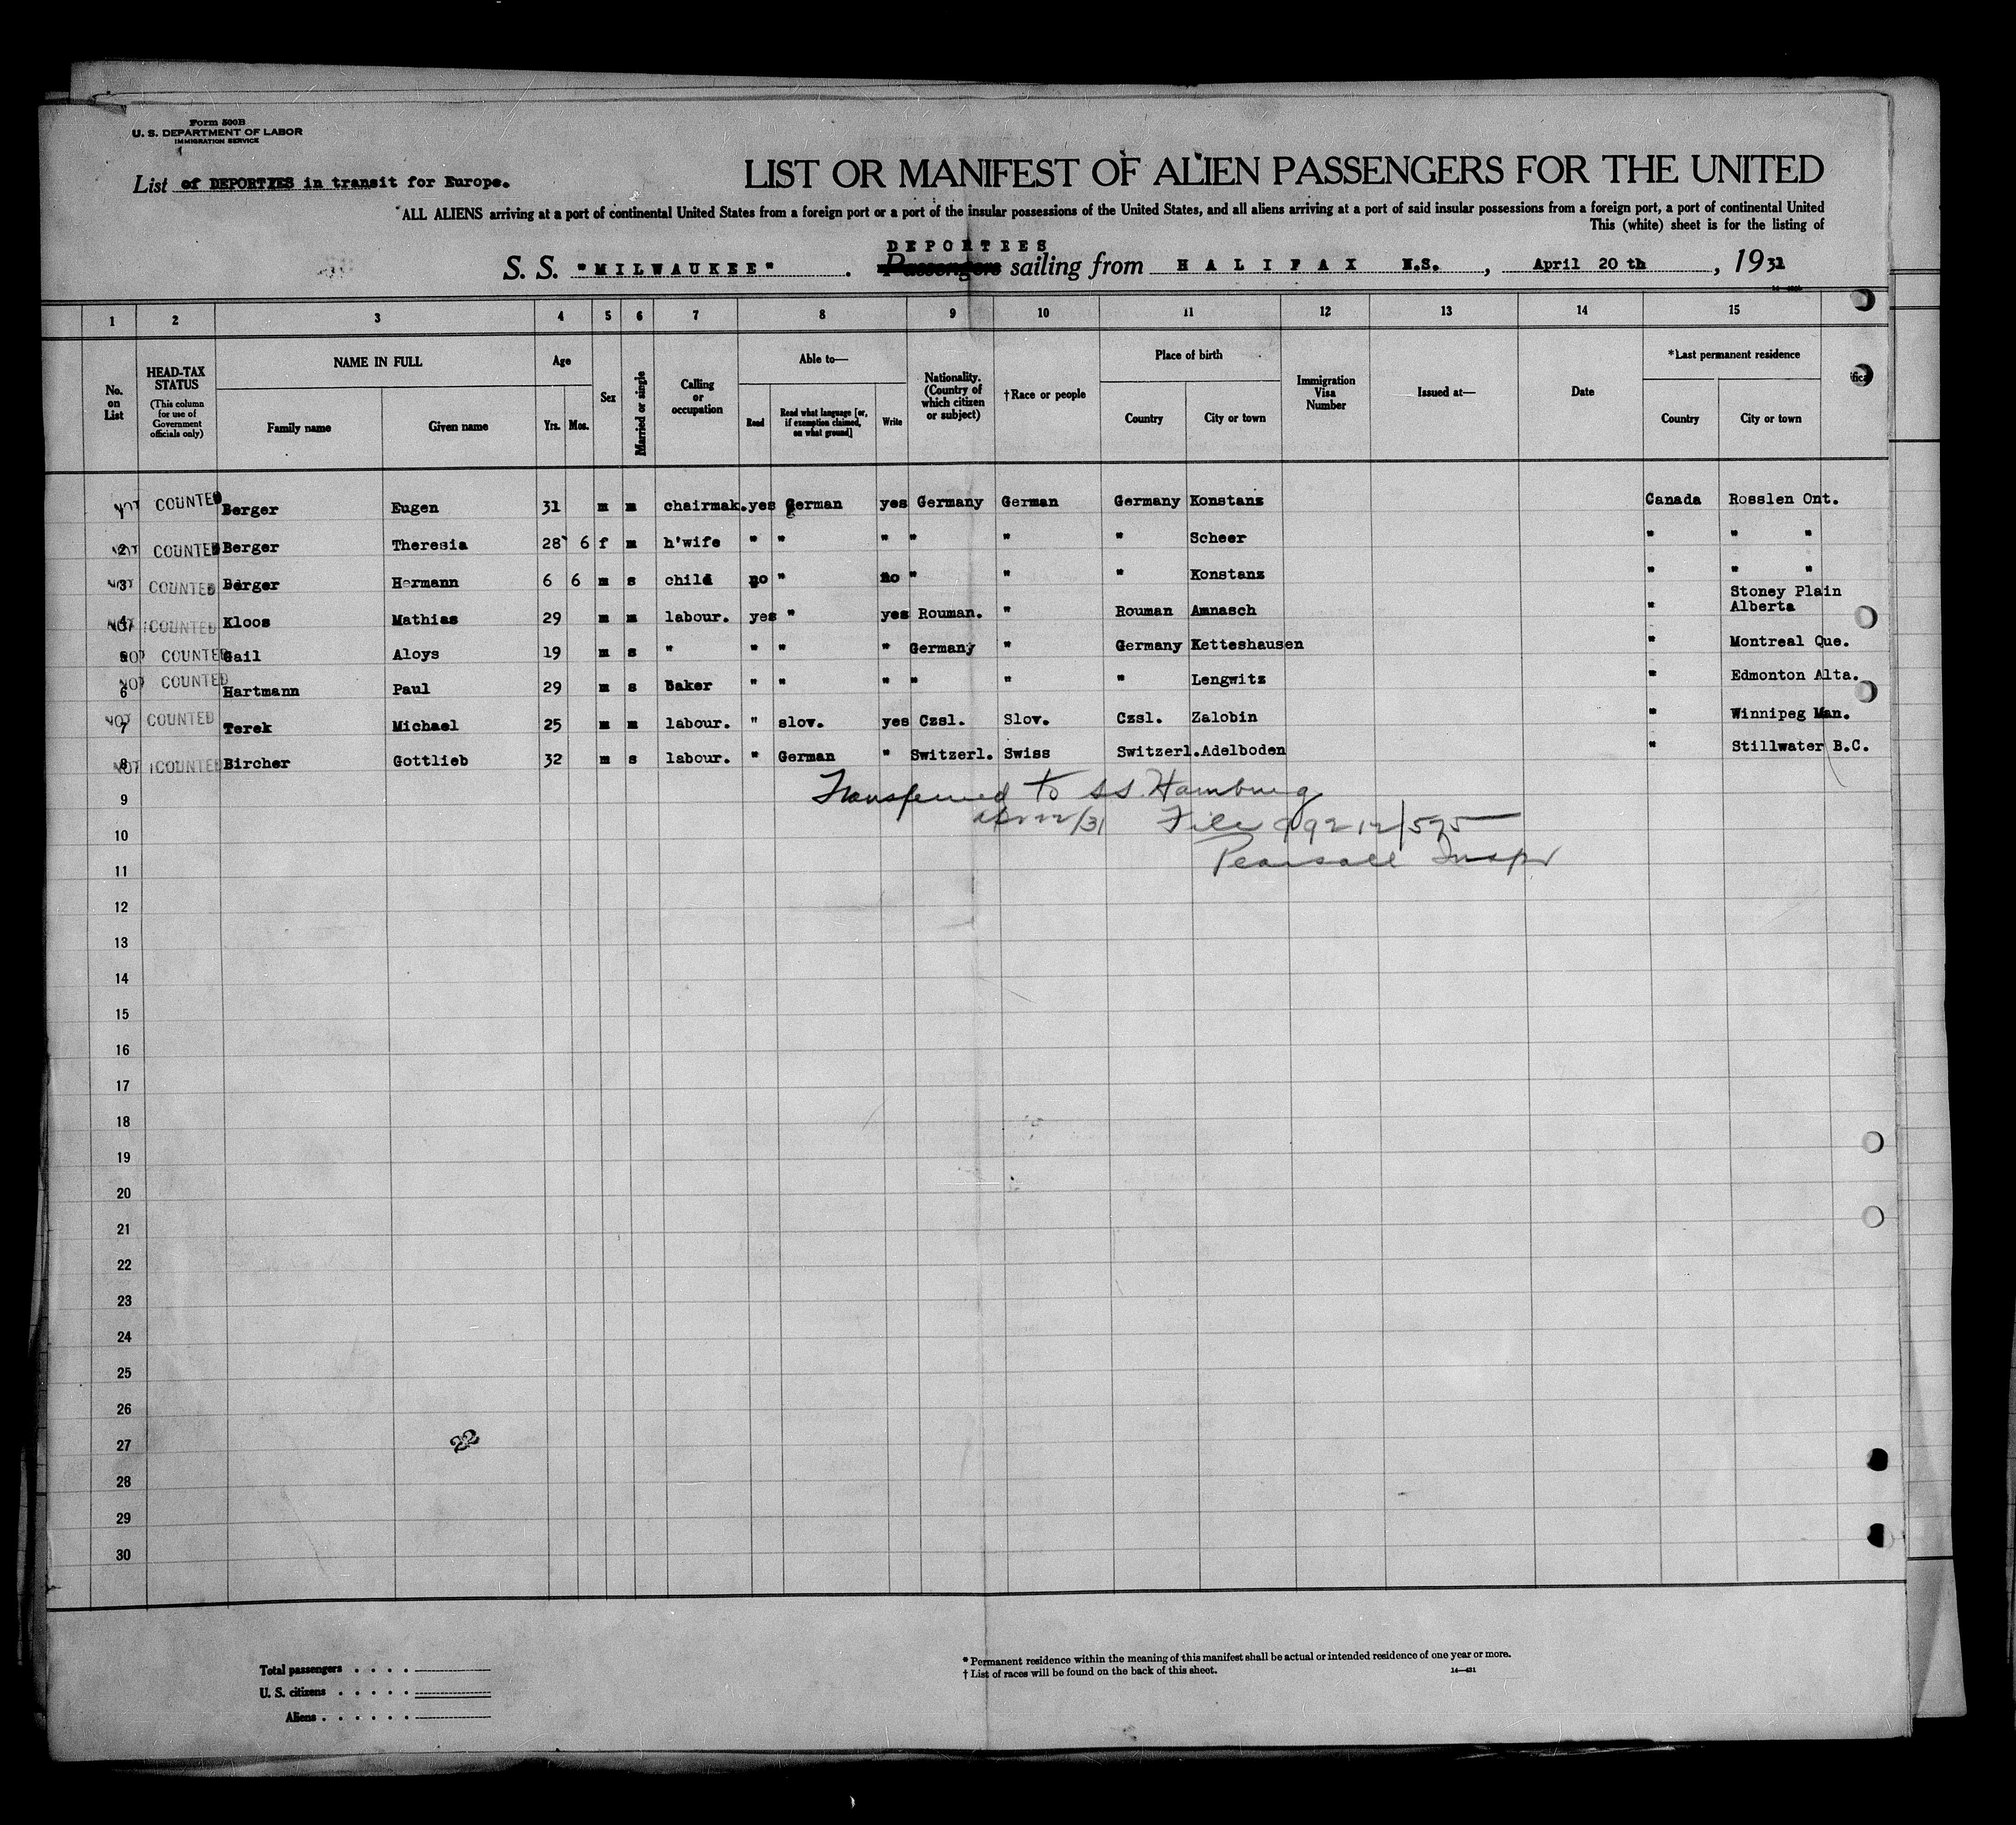 Form 500B
U. S. DEPARTMENT OF LABOR
IMMIGRATION SERVICE
List of DEPORTEES in transit for Europe.
LIST OR MANIFEST OF ALIEN PASSENGERS FOR THE UNITED
ALL ALIENS arriving at a port of continental United States from a foreign port or a port of the insular possessions of the United States, and all aliens arriving at a port of said insular possessions from a foreign port, a port of continental United
This (white) sheet is for the listing of
DEPORTEES
S. S. "MILWAUKEE". Passengers sailing from HALIFAX N.S., April 20 th, 1931
1 2 3 4 5 6 7 8 9 10 11 12 13 14 15
No. on List
HEAD-TAX STATUS (This column for use of Government officials only)
NAME IN FULL Family name Given name
Age Yrs. Mos.
Sex
Married or single
Calling or occupation
Able to— Read Read what language [or, if exemption claimed, on what ground] Write
Nationality. (Country of which citizen or subject)
†Race or people
Place of birth Country City or town
Immigration Visa Number
Issued at—
Date
*Last permanent residence Country City or town
1 NOT COUNTED Berger Eugen 31 m m chairmak. yes German yes Germany German Germany Konstanz Canada Rosslen Ont.
2 NOT COUNTED Berger Theresia 28 6 f m h'wife " " " " " " Scheer " " "
3 NOT COUNTED Berger Hermann 6 6 m s child no " no " " " Konstanz " " "
4 NOT COUNTED Kloos Mathias 29 m m labour. yes " yes Rouman. " Rouman Amnasch " Stoney Plain Alberta
5 NOT COUNTED Gail Aloys 19 m s " " " " Germany " Germany Ketteshausen " Montreal Que.
6 NOT COUNTED Hartmann Paul 29 m s Baker " " " " " " Lengwitz " Edmonton Alta.
7 NOT COUNTED Terek Michael 25 m m labour. " slov. yes Czsl. Slov. Czsl. Zalobin " Winnipeg Man.
8 NOT COUNTED Bircher Gottlieb 32 m s labour. " German " Switzerl. Swiss Switzerl. Adelboden " Stillwater B.C.
Transferred to SS. Hamburg
9
Apr 22/31 File 99212/575
10
Pearsall Inspr
11
12
13
14
15
16
17
18
19
20
21
22
23
24
25
26
27
22
28
29
30
Total passengers . . . .
U. S. citizens . . . . .
Aliens . . . . . .
* Permanent residence within the meaning of this manifest shall be actual or intended residence of one year or more.
† List of races will be found on the back of this sheet. 14—421